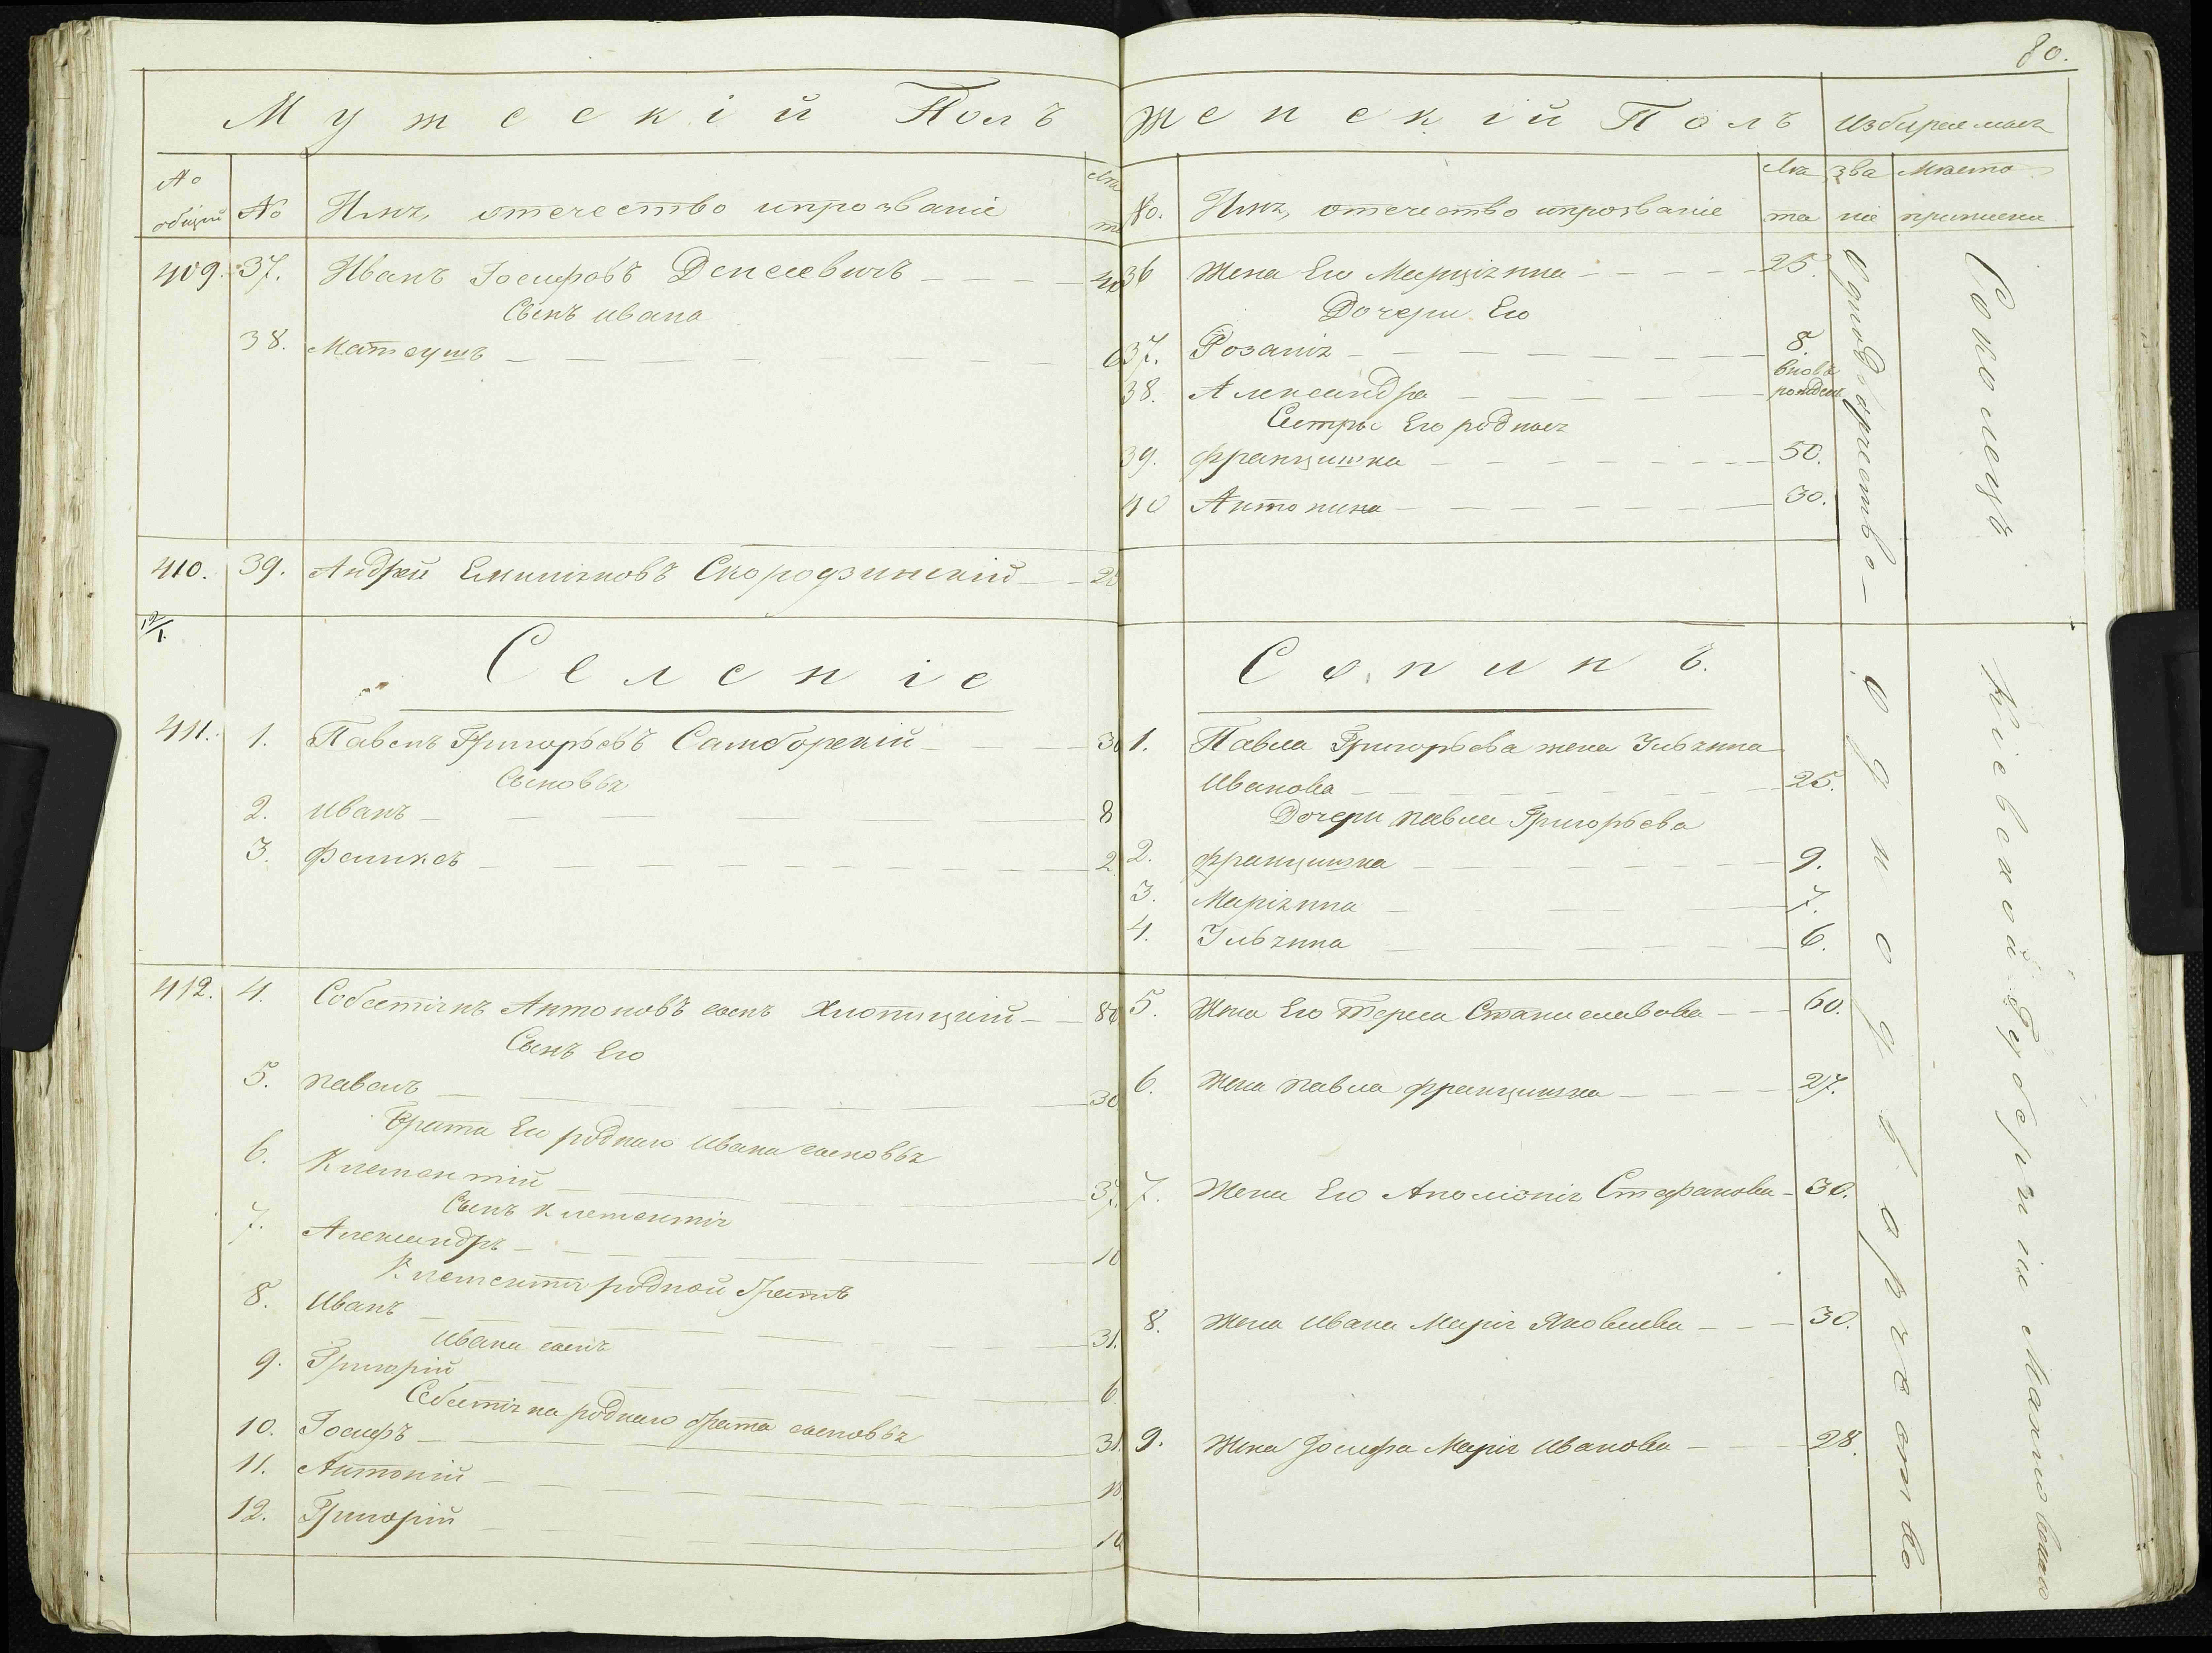 80.
Мужескій Полъ
№ общій
№
Имя, отечество ипрозваніе
Лѣта
409. 37. Иванъ Іосифовъ Денисевичъ
Сынъ Ивана
38. Матеушъ
410. 39. Андрей Емиліяновъ Скородзинскій
12/1.
Селеніе
411. 1. Павелъ Григорьевъ Самборскій
Сыновья
2. Иванъ 8
3. Феликсъ 2
412. 4. Собестіянъ Антоновъ сынъ Хлопицкій
Сынъ Его
5. Павелъ 30
Брата Его роднаго Ивана сыновья
6. Клементій 37.
Сынъ Клементія
7. Александръ 10
Клементія родной братъ
8. Иванъ 31.
Ивана сынъ
9. Григорій 6.
Себестіяна роднаго брата сыновья
10. Іосифъ 31.
11. Антоній 18.
12. Григорій
Женскій Полъ
Избираемая
№.
Имя, отечество ипрозваніе
Лѣта
званіе
Мѣсто приписки
36 Жена Его Марціянна 25.
Дочери Его
37. Розалія 8.
38. Александра вновь рожден.
Сестры Его родныя
39. Францишка 50.
40 Антонина 30.
Сопинъ.
1. Павла Григорьева жена Ульянна
Иванова 25.
Дочери Павла Григорьева
2. Францишка 9.
3. Маріянна 7.
4. Ульянна 6.
5. Жена Его Тереса Станиславова 60.
6. Жена Павла Францишка 27.
7. Жена Его Аполіонія Стефанова 30.
8. Жена Ивана Марія Яковлева 30.
9. Жена Іосифа Марія Иванова 28.
Однодворчество
Соколецъ
Однодворчество
Кіевской Губерніи Махновскаго